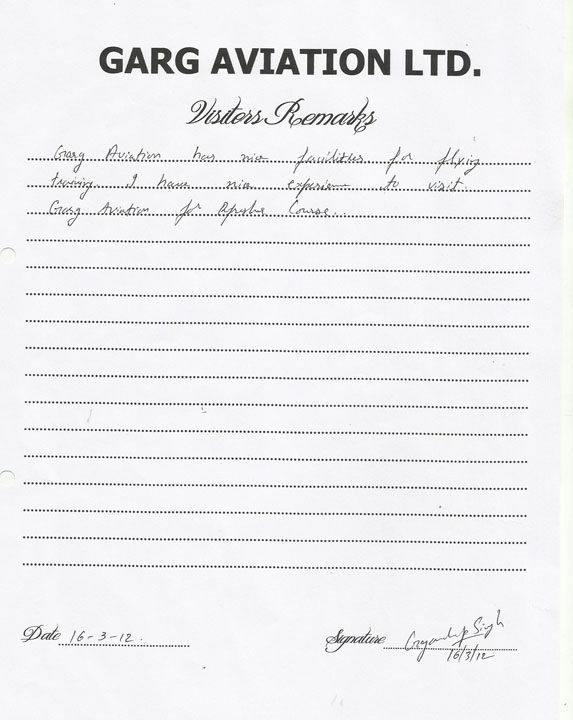 GARG AVIATION LTD.
Visiters Remarks
Garg Aviation has nice facilities for flying
training. I have nice experience to visit
Garg Aviation for Refresher Course..
Date 16-3-12.
Signature Singh
16/3/12